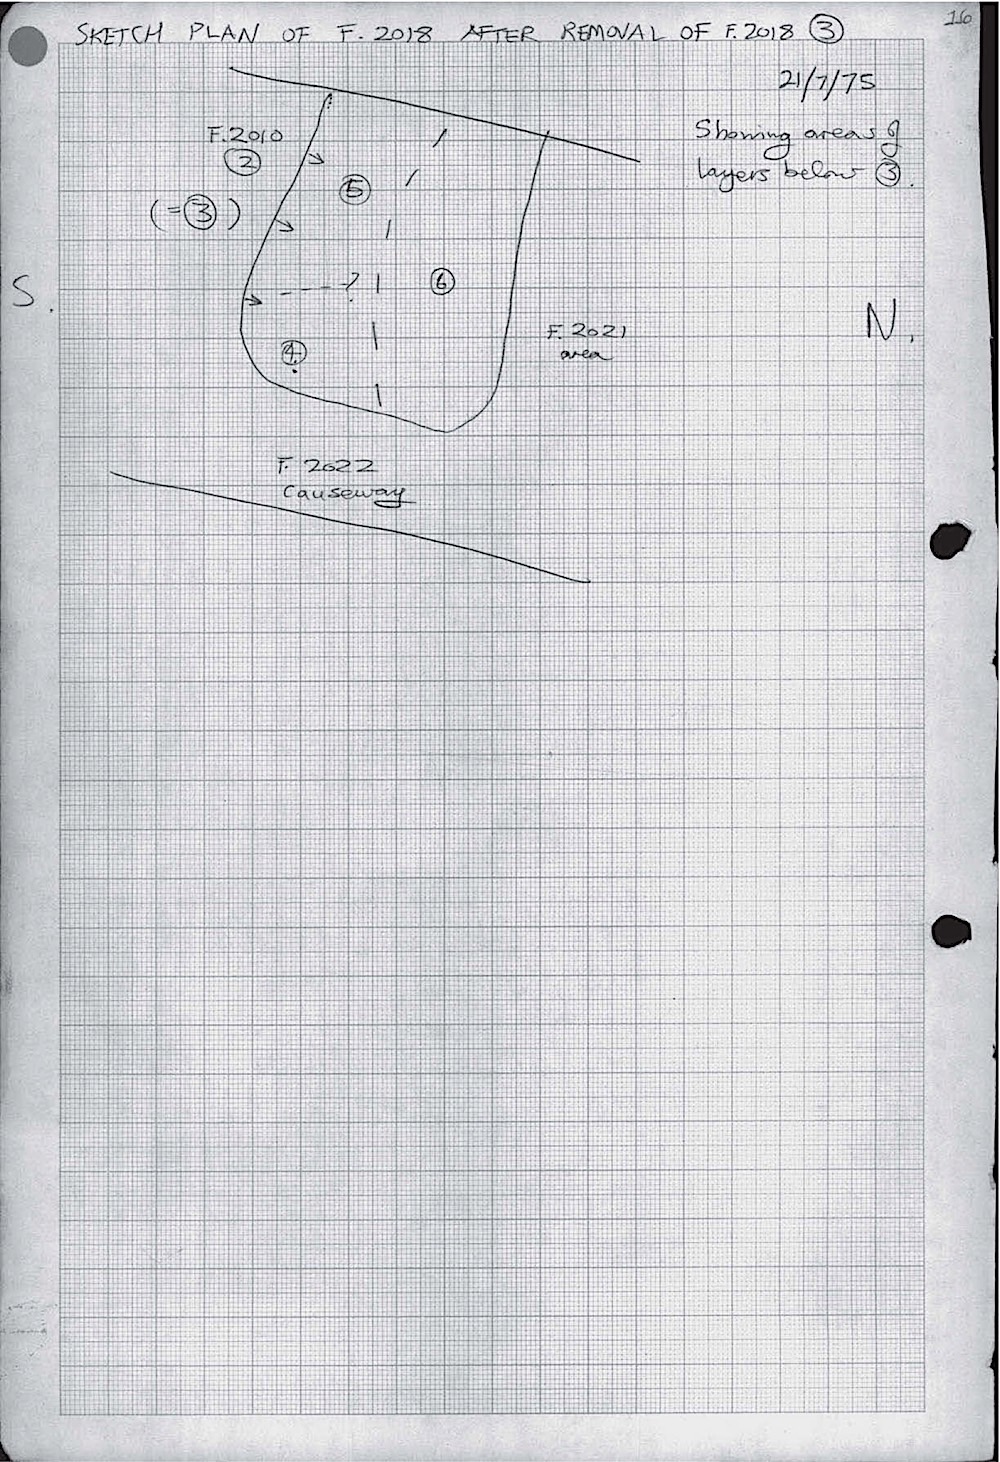 16
SKETCH PLAN OF F.2018 AFTER REMOVAL OF F.2018 ③
21/7/75
Showing areas of
layers below ③.
F.2010
②
(=③)
⑤
S.
?
⑥
N.
F.2021
area
④
F.2022
Causeway